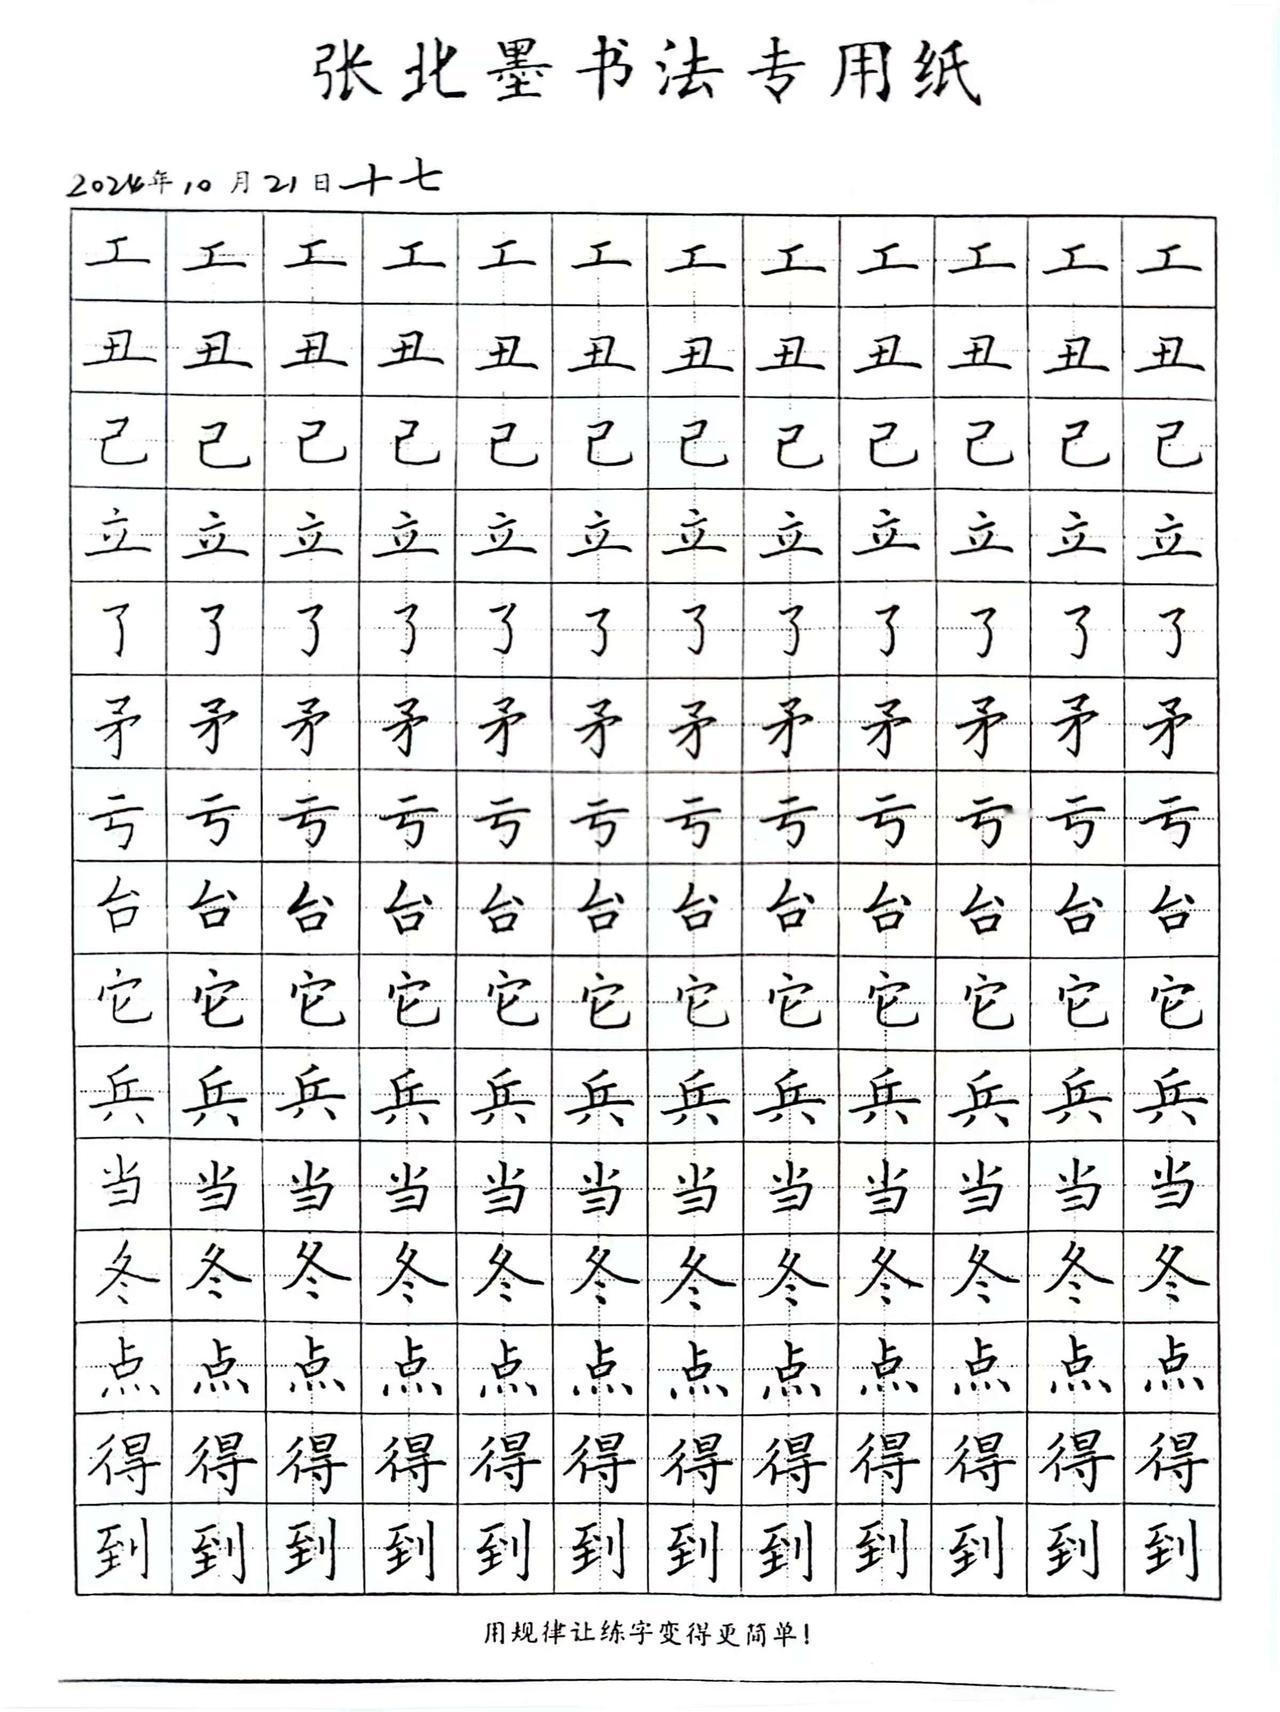 张北墨书法专用纸
2024年10月21日十七
工工工工工工工工工工工工
丑丑丑丑丑丑丑丑丑丑丑丑
己己己己己己己己己己己己
立立立立立立立立立立立立
了了了了了了了了了了了了
矛矛矛矛矛矛矛矛矛矛矛矛
亏亏亏亏亏亏亏亏亏亏亏亏
台台台台台台台台台台台台
它它它它它它它它它它它它
兵兵兵兵兵兵兵兵兵兵兵兵
当当当当当当当当当当当当
冬冬冬冬冬冬冬冬冬冬冬冬
点点点点点点点点点点点点
得得得得得得得得得得得得
到到到到到到到到到到到到
用规律让练字变得更简单!